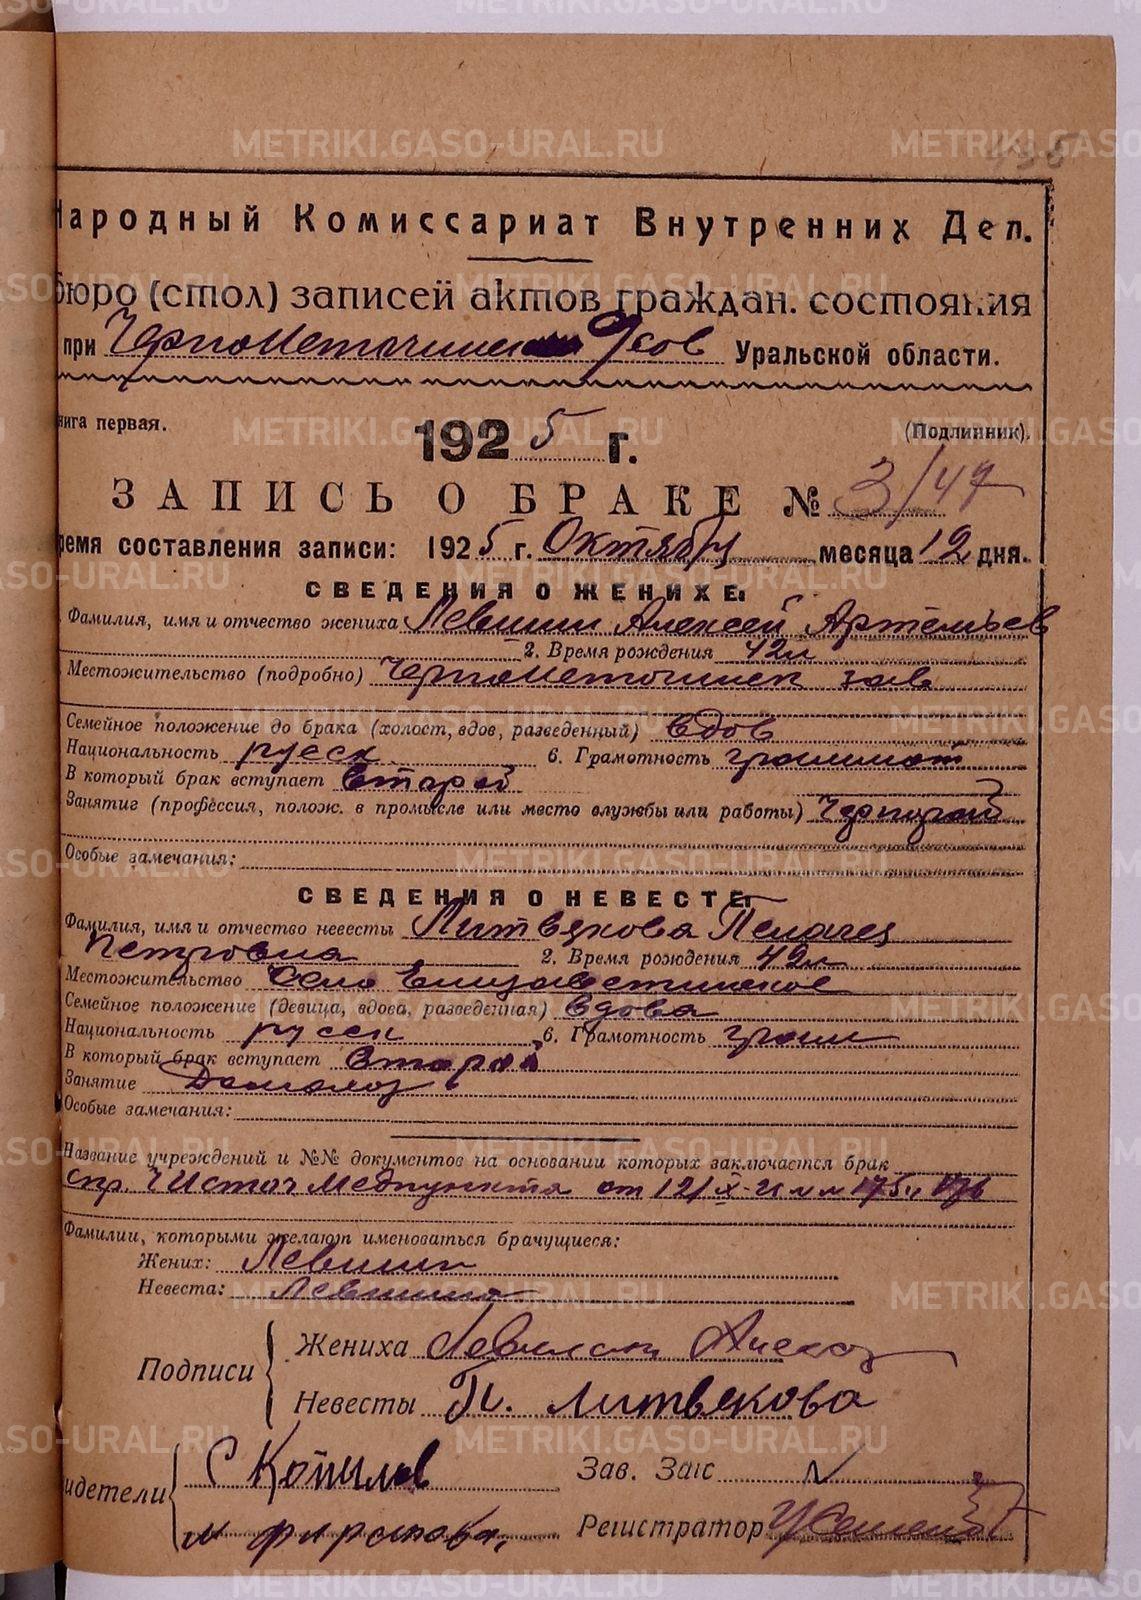 Народный Комиссариат Внутренних Дел.
бюро (стол) записей актов граждан. состояния
при Черноисточинск Уральской области.
книга первая. (Подлинник).
1925 г.
ЗАПИСЬ О БРАКЕ № 3/47
Время составления записи: 1925 г. Октября месяца 12 дня.
СВЕДЕНИЯ О ЖЕНИХЕ.
Фамилия, имя и отчество жениха Левшин Алексей Артемьев
2. Время рождения 42 л
Местожительство (подробно) Черноисточинск зав
Семейное положение до брака (холост, вдов, разведенный) вдов
Национальность русск 6. Грамотность грамот
В который брак вступает второй
Занятие (профессия, полож. в промысле или место службы или работы)
Особые замечания:
СВЕДЕНИЯ О НЕВЕСТЕ.
Фамилия, имя и отчество невесты Литвякова Пелагея
Петровна 2. Время рождения 42 л
Местожительство Село Елизаветинское
Семейное положение (девица, вдова, разведенная) вдова
Национальность русск 6. Грамотность грам
В который брак вступает второй
Занятие Домохоз
Особые замечания:
Название учреждений и №№ документов на основании которых заключается брак
Спр. Ч Источ Медпункта от 12/X-
Фамилии, которыми желают именоваться брачущиеся:
Жених: Левшин
Невеста: Левшина
Подписи
Жениха Левшин Алексей
Невесты П. Литвякова
Свидетели
С Копылов
Зав. Загс
М
Регистратор
METRIKI.GASO-URAL.RU